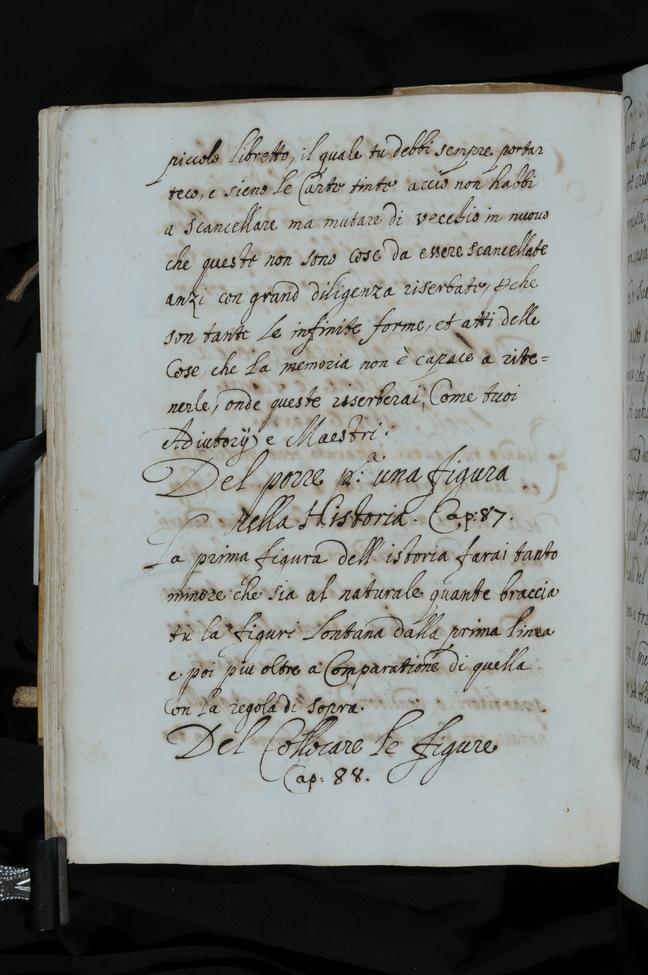 piccolo libretto, il quale tu debbi sempre portar
teco, e sieno le Carte tinte acciò non habbi
a scancellare ma mutare di vecchio in nuovo
che queste non sono cose da essere scancellate
anzi con grand diligenza riserbate, p che
son tante le infinite forme, et atti delle
Cose che la memoria non è capace a rite=
nerle, onde queste riserberai, Come tuoi
Adiutorij e Maestri.
Del porre pa. una figura
nella Historia. Cap: 87
La prima figura dell' istoria farai tanto
minore che sia al naturale quante braccia
tu la figuri lontana dalla prima linea
e poi piu oltre a Comparatione di quella
con la regola di sopra.
Del Collocare le figure
Cap: 88.